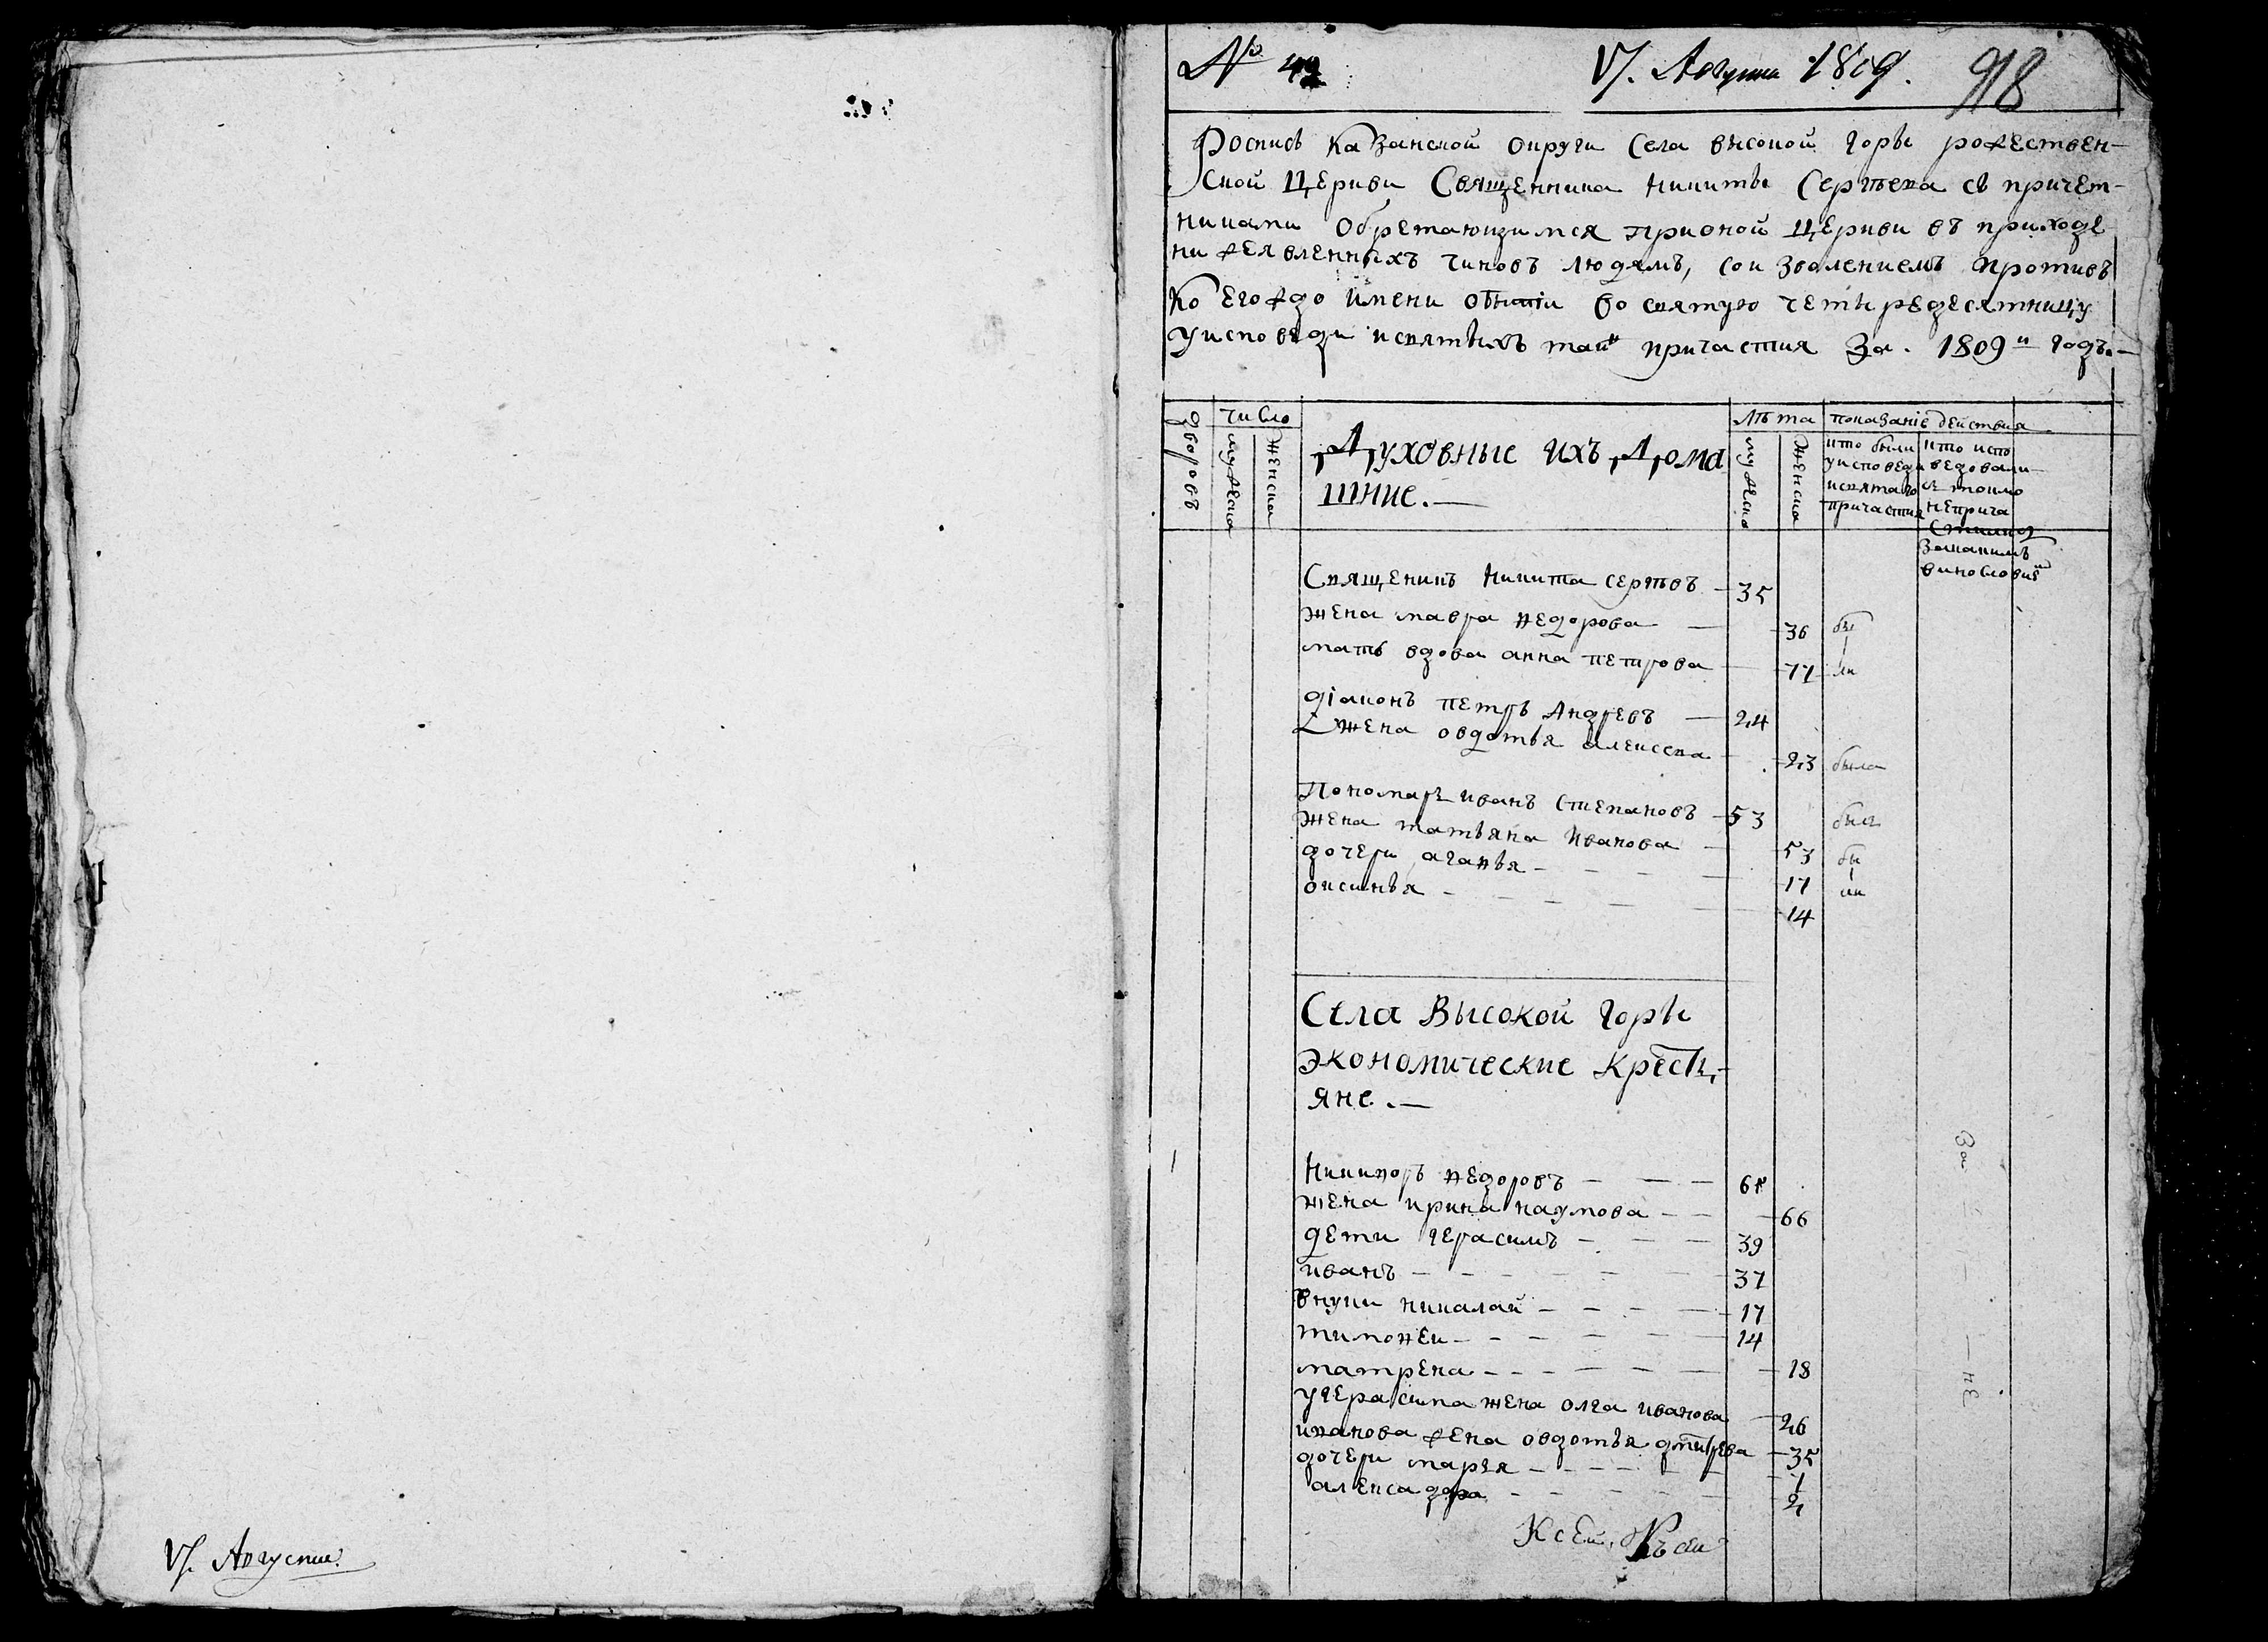 V/. Августа.
№ 42
V/. Августа 1809. 918
Роспись Казанской округи Села высокой горы рождествен-
ской Церкви Священника никиты Сергѣева съ причет-
никами обретающимся прионой церкви въ приходе
ниже явленныхъ чиновъ людямъ, сои зволениемъ противъ
Ко Егождо имени обытіи во святую четыредесятницу
уисповѣди исвятыхъ таи причастия За. 1809 годъ.—
дворовъ
число
мужеска
женска
Духовные ихъ Дома
шние.—
лѣта
мужеска
женска
показаніе действия
кто были
уисповеди
исвятаго
причастия
кто испо
ведовали
а токмо
неприча
стился
закакимъ
винословие
Священикъ никита сергѣевъ — 35
жена мавра федорова — 36 бы
мать вдова анна петрова — 77 ли
діаконъ петръ Андревъ — 24
жена овдотья алексева — 23 была
Пономарь иванъ степановъ — 53 былъ
жена татьяна иванова — 53 бы
дочери агафья — 17 ли
оксинья — 14
Села Высокой горы
экономические кресть,-
яне.—
1 никифоръ федоровъ — 68
жена ирина наумова — 66
дети герасимъ — 39
иванъ — 37
внуки николай — 17
тимофеи — 14
матрена — 18
угерасима жена олга иванова — 26
иванова жена овдотья дмитрева — 35
дочери марья — 1
алексадра — 2
За — — — —